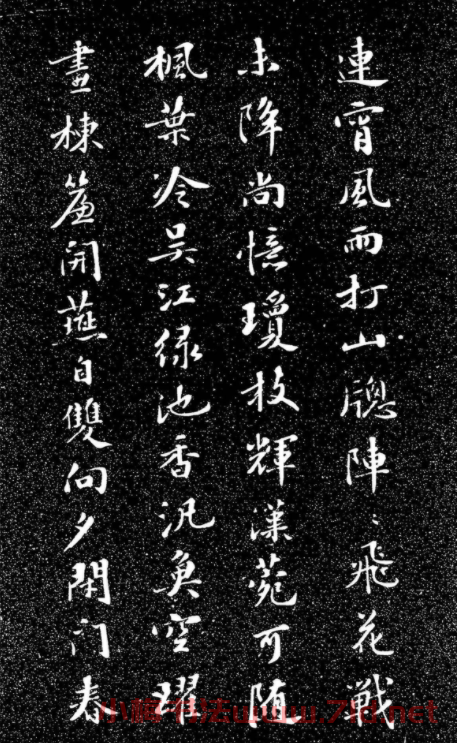 連宵風雨打山牕陣々飛花戰
未降尚憶瓊枝輝漢苑可随
楓葉冷吴江緑池香汎魚空躍
畫棟簾開燕自雙向夕閑门春
小楷书法www.7ltd.net